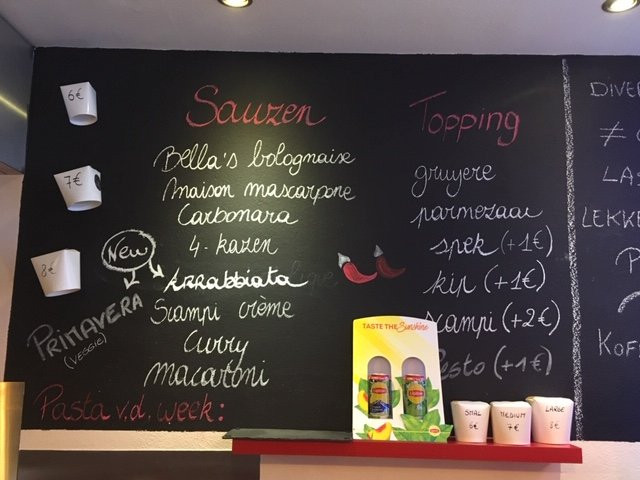 6€
7€
8€
Sauzen
Bella's bolognaise
maison mascarpone
Carbonara
4-kazen
New
Arrabbiata
Scampi crème
Curry
macaroni
PRIMAVERA
(VEGGIE)
Pasta v.d. week:
Topping
gruyere
parmezaan
spek (+1€)
kip (+1€)
scampi (+2€)
Pesto (+1€)
DIVER
≠
LAS
LEKKE
P
KOFF
TASTE THE Sunshine
Lipton
SMAL
6€
MEDIUM
7€
LARGE
8€